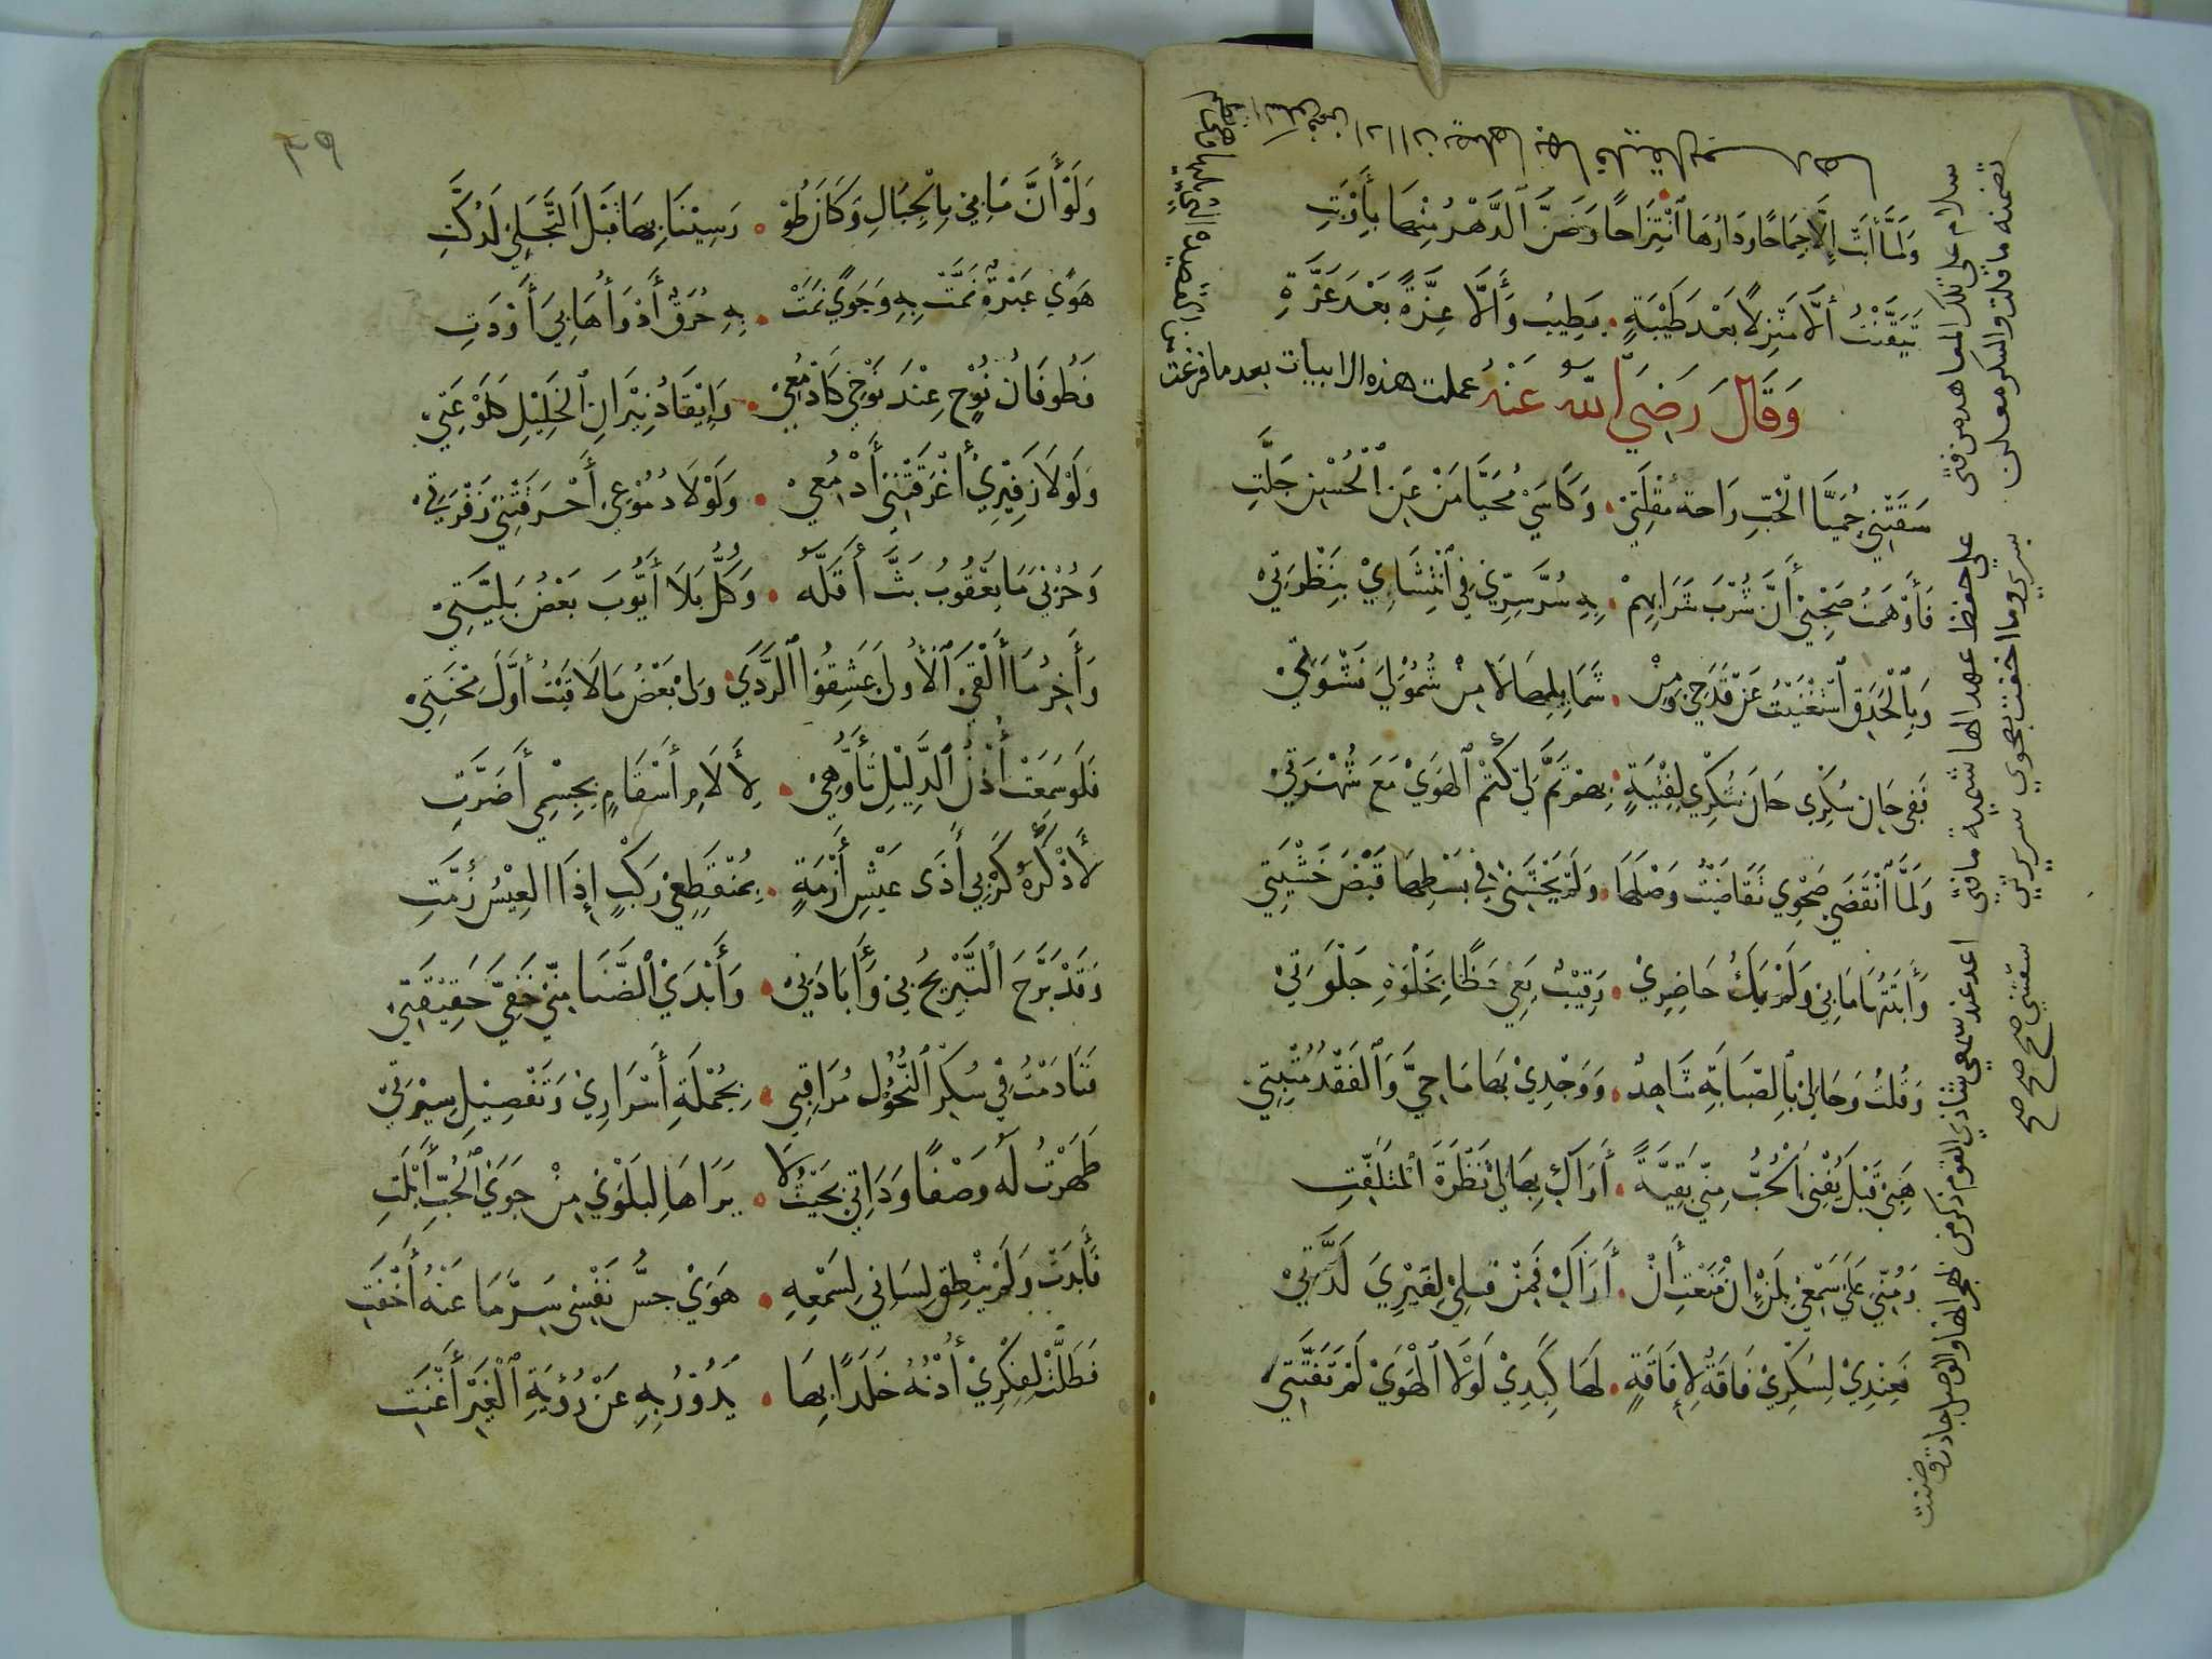 وَلَمَّا أَبَتْ إِلَّا جِمَاحًا وَدَارُهَا ٱنْتِزَاحًا وَضَنَّ ٱلدَّهْرُ مِنْهَا بِأَوْبَتِ
تَيَقَّنْتُ أَلَّا مَنْزِلًا بَعْدَ طَيْبَةٍ • يَطِيْبُ وَأَلَّا عِزَّةً بَعْدَ عَزَّةِ
وَقَالَ رَضِيَ اللّٰهُ عَنْهُ عملت هذه الابيات بعد ما فرغت
من القصيده التي يليها
سَقَتْنِي حُمَيَّا الْحُبِّ رَاحَةُ مُقْلَتِيْ • وَكَاسِيْ مُحَيَّا مَنْ عَنِ ٱلْحُسْنِ جَلَّتِ
فَأَوْهَمْتُ صَحْبِيْ أَنَّ شُرْبَ شَرَابِهِمْ • بِهِ سُرَّ سِرِّيْ فِي ٱنْتِشَاءِيْ بِنَظْرَتِيْ
وَبِٱلْحَدَقِ ٱسْتَغْنَيْتُ عَنْ قَدَحِيْ وَمِنْ • شَمَايِلِهَا لَا مِنْ شُمُوْلِيَ نَشْوَتِيْ
فَفِي حَانِ سُكْرِيْ حَانَ شُكْرِي لِفِتْيَةٍ • بِهِمْ تَمَّ لِيْ كَتْمُ ٱلْهَوَيْ مَعَ شُهْرَتِيْ
وَلَمَّا ٱنْقَضَى صَحْوِي تَقَاضَيْتُ وَصْلَهَا • وَلَمْ يَخْشَنِيْ فِي بَسْطِهَا قَبْضُ خَشْيَتِي
وَأَبْثَثْتُهَا مَا بِيْ وَلَمْ يَكُ حَاضِرِيْ • رَقِيْبٌ بَقِي حَظًّا بِخَلْوَةِ جَلْوَتِيْ
وَقُلْتُ وَحَالِيْ بِٱلصَّبَابَةِ شَاهِدٌ • وَوَجْدِيْ بِهَا مَاحِيَّ وَٱلْفَقْدُ مُثْبِتِيْ
هَبِيْ قَبْلَ يُفْنِي ٱلْحُبُّ مِنِّي بَقِيَّةً • أَرَاكِ بِهَا لِيْ نَظْرَةَ ٱلْمُتَلَفِّتِ
وَمُنِّيْ عَلَى سَمْعِيْ بِلَنْ إِنْ مَنَعْتِ أَنْ • أَرَاكِ فَمِنْ قَبْلِيْ لِغَيْرِيَ لَذَّتِيْ
فَعِنْدِيْ لِسُكْرِيْ فَاقَةٌ لِإِفَاقَةٍ • لَهَا كَبِدِيْ لَوْلَا ٱلْهَوَيْ لَمْ تَفَتَّتِ
سلام على تلك المعاهد من فتى على حفظ عهد الهاشمية ما فتي اعد عند سمعي شادي القوم ذكر من بهجرانها والوصل جادت وضنت
تضمنه ما قلت والسكر معلن بسري وما اخفت بصحوي سريرتي سقتني صح صح صح
٣٩
وَلَوْ أَنَّ مَا بِيْ بِالْجِبَالِ وَكَانَ طُوْ • رَسِيْنَا بِهَا قَبْلَ ٱلتَّجَلِّيْ لَدُكَّتِ
هَوًى عَبْرَةٌ نَمَّتْ بِهِ وَجَوًى نَمَتْ • بِهِ حُرَقٌ أَدْوَاءُهَا بِيَ أَوْدَتِ
فَطُوفَانُ نُوْحٍ عِنْدَ نَوْحِيْ كَأَدْمُعِيْ • وَإِيْقَادُ نِيْرَانِ ٱلْخَلِيْلِ كَلَوْعَتِيْ
وَلَوْلَا زَفِيْرِيْ أَغْرَقَتْنِيَ أَدْمُعِيْ • وَلَوْلَا دُمُوْعِيْ أَحْرَقَتْنِيْ زَفْرَتِيْ
وَحُزْنِيَ مَا يَعْقُوبُ بَثَّ أَقَلَّهُ • وَكُلُّ بَلَا أَيُّوبَ بَعْضُ بَلِيَّتِيْ
وَأَخِرُ مَا أَلْقَى ٱلْأُولَى عَشِقُوا ٱلرَّدَيْ • وَلِيْ بَعْضُ مَا لَاقَيْتُ أَوَّلَ مِحْنَتِيْ
فَلَو سَمِعَتْ أُذْنُ ٱلدَّلِيْلِ تَأَوُّهِيْ • لِأَلَامِ أَسْقَامٍ بِجِسْمِي أَضَرَّتِ
لَأَذْكَرَهُ كَرْبِيْ أَذَى عَيْشِ أَزْمَةٍ • بِمُنْقَطِعِيْ رَكْبٍ إِذَا الْعِيْسُ زُمَّتِ
وَقَدْ بَرَّحَ ٱلتَّبْرِيْحُ بِيْ وَأَبَادَنِيْ • وَأَبْدَيْ ٱلضَّنَا مِنِّيْ خَفِيَّ حَقِيْقَتِيْ
فَنَادَمْتُ فِيْ سُكْرِ ٱلنُّحُوْلِ مُرَاقِبِيْ • بِجُمْلَةِ أَسْرَارِيْ وَتَفْصِيْلِ سِيْرَتِيْ
ظَهَرْتُ لَهُ وَصْفًا وَذَاتِي بِحَيْثُ لَا • يَرَاهَا لِبَلْوَيْ مِنْ جَوَيْ ٱلْحُبِّ أَبْلَتِ
فَأَبْدَتْ وَلَمْ يَنْطِقْ لِسَانِيْ لِسَمْعِهِ • هَوَاجِسُ نَفْسِيْ سِرَّ مَا عَنْهُ أَخْفَتِ
فَظَلَّتْ لِفِكْرِيْ أُذْنُهُ خَلَدًا بِهَا • يَدُوْرُ بِهِ عَنْ رُؤْيَةِ ٱلْغَيْرِ أَغْنَتِ